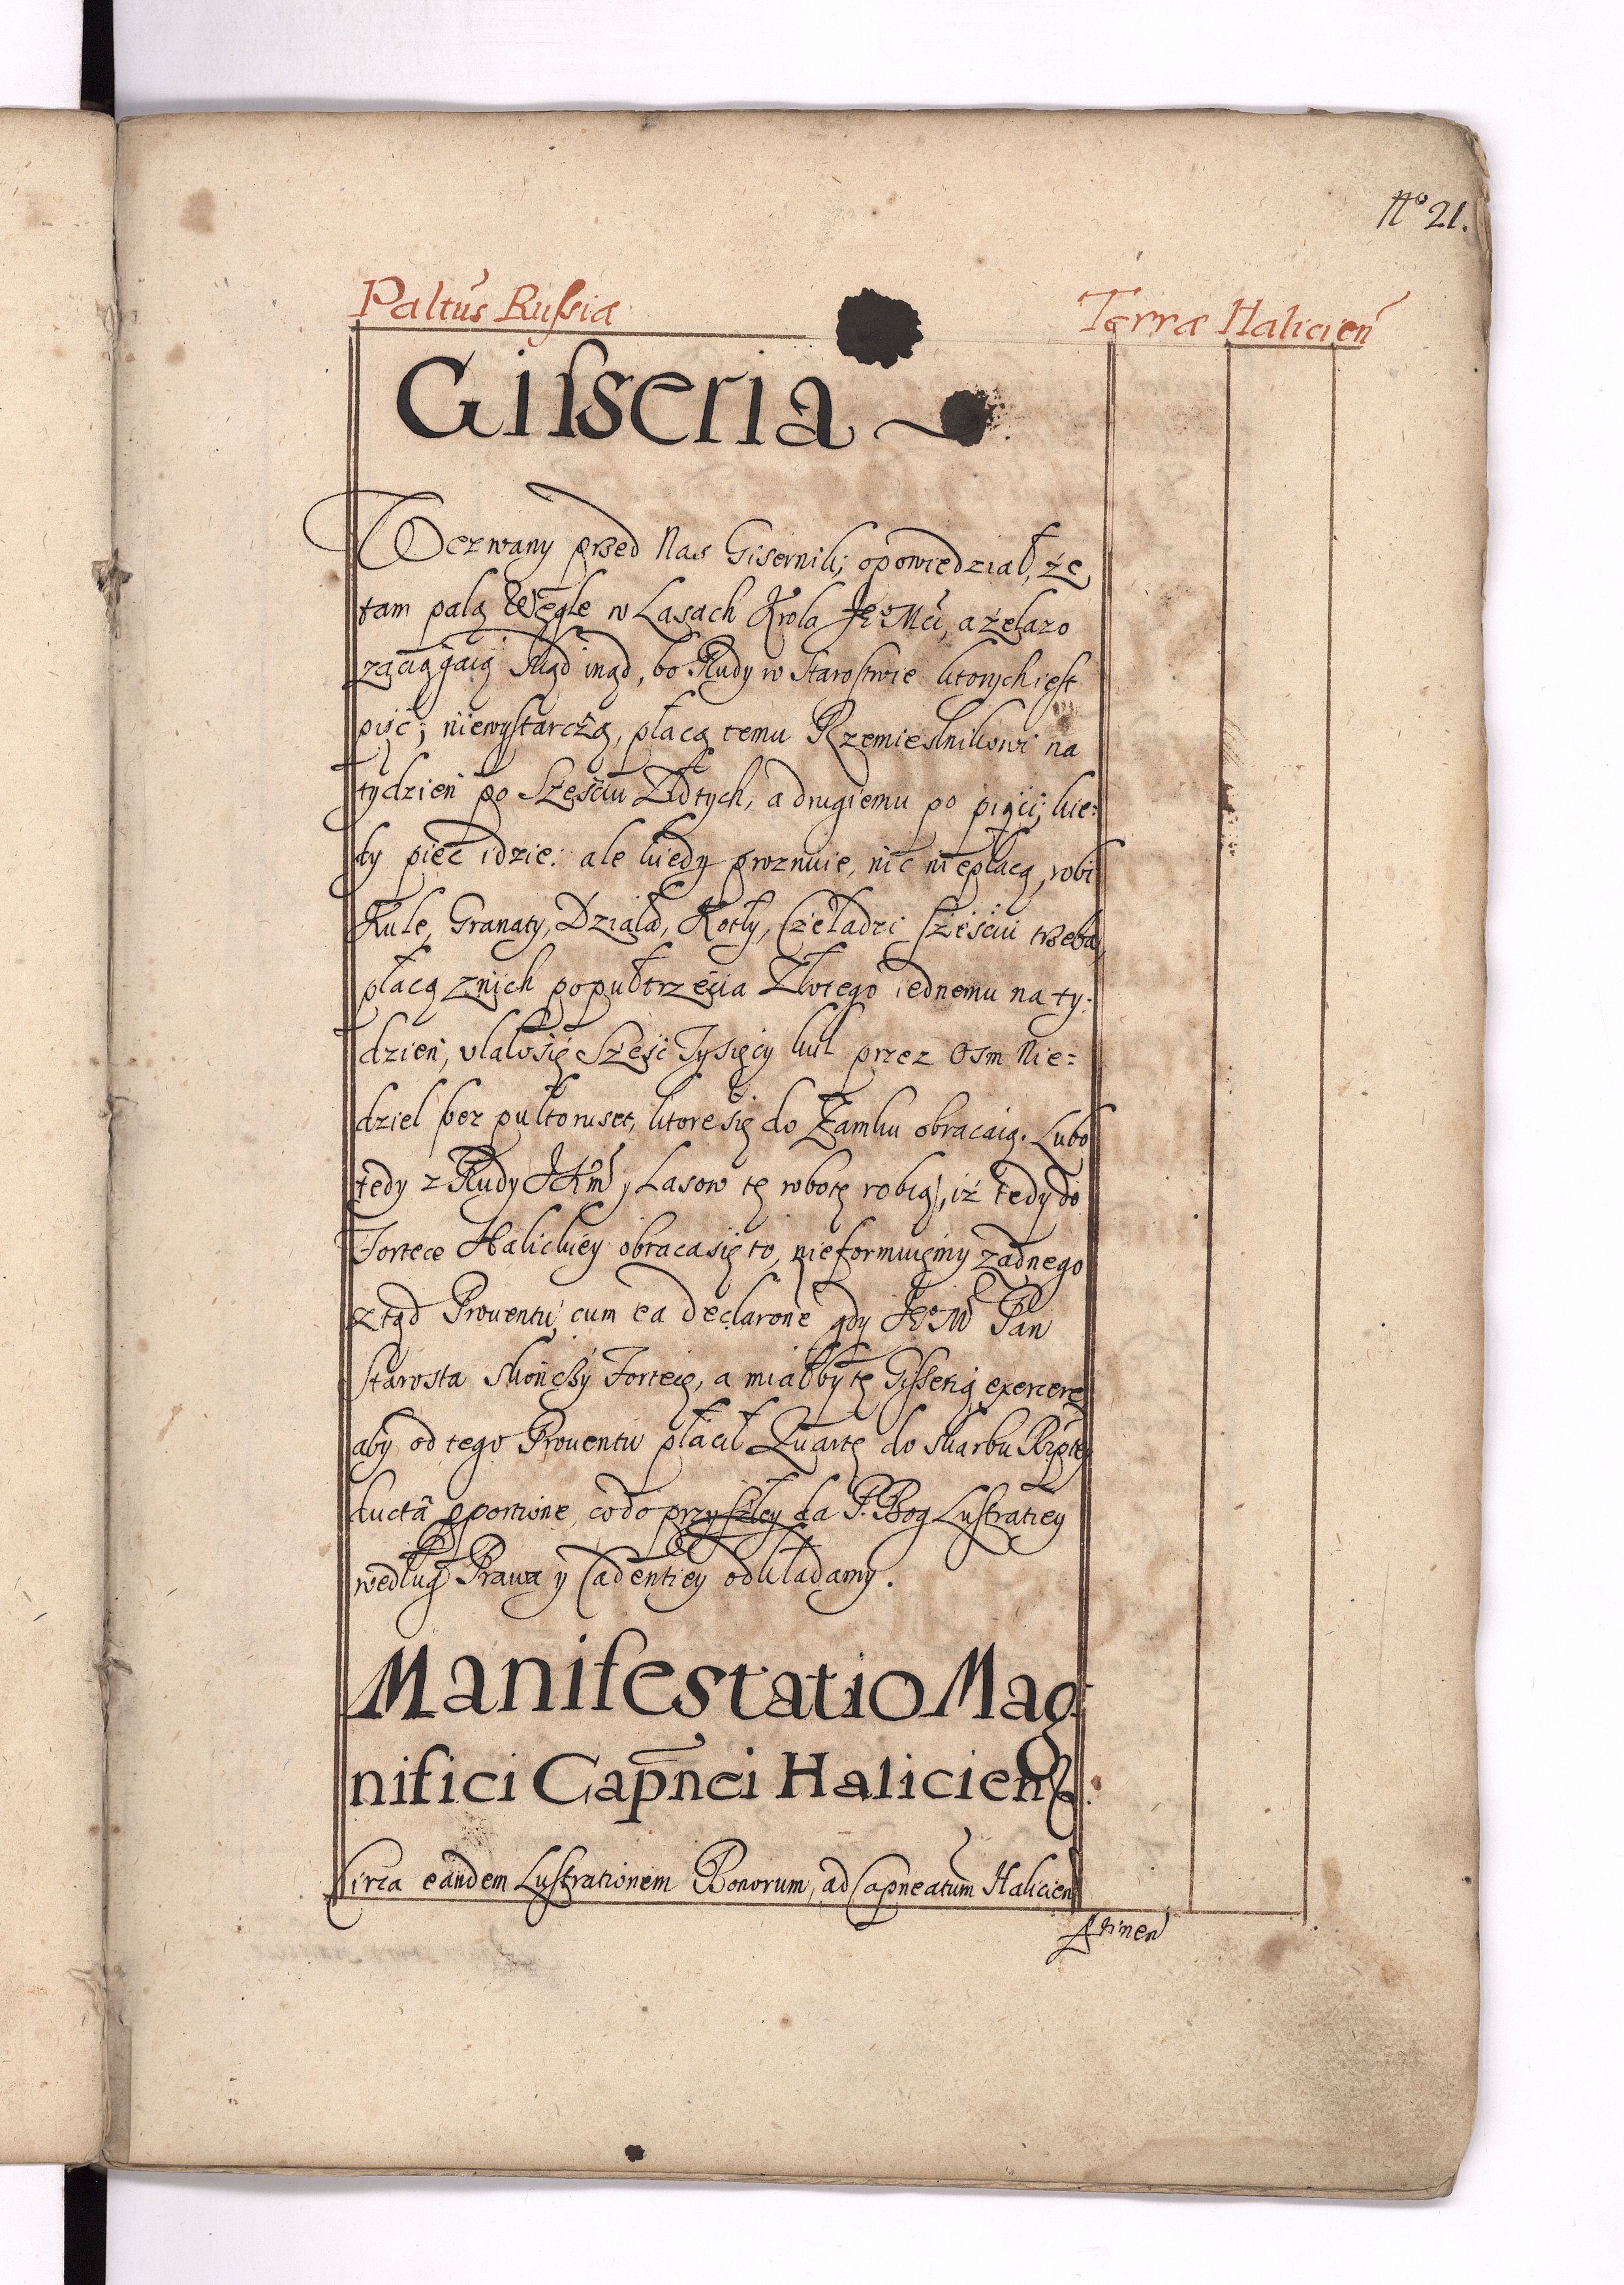 No 21.
Paltus Russiæ
Terræ Halicien
Gisseria
Wezwany przed Nas Gisernik; opowiedział, że
tam palą Węgle w Lasach Krola Je° Mci, a żelazo
zaciągaią skąd inąd, bo Rudy w Starostwie ktorych iest
pięć; niewystarczą, płacą temu Rzemieslnikowi na
tydzień po Sześciu Złotych, a drugiemu po pięci; kie=
dy piec idzie: ale kiedy proznuie, nic nie płacą, robi
Kule, Granaty, Działa, Kotły, Czeladzi sześciu trzeba,
płacą znich popułtrzecia Złotego iednemu na ty=
dzień, ulałosię Sześć Tysięcy kul przez Osm Nie=
dziel bez pułtoruset, ktore się do Zamku obracaią. Lubo
tedy z Rudy JKm y Lasow tę robotę robią, iż tedy do
Fortece Halickiey obraca się to, nieformuięmy żadnego
ztąd Prouentu, cum ea declarone gdy Je° M Pan
Starosta skończy Fortecę, a miałby tę Gisserią exercere
aby od tego Prouentu płacił Kwartę do skarbu Rzptey
ducta pportione, co do przyszłey da P. Bog Lustratiey
według Prawa y Cadentiey odkładamy.
Manifestatio Mag
nifici Capnei Halicien
Circa eandem Lustrationem Bonorum, ad Capneatum Halicien
Attinen